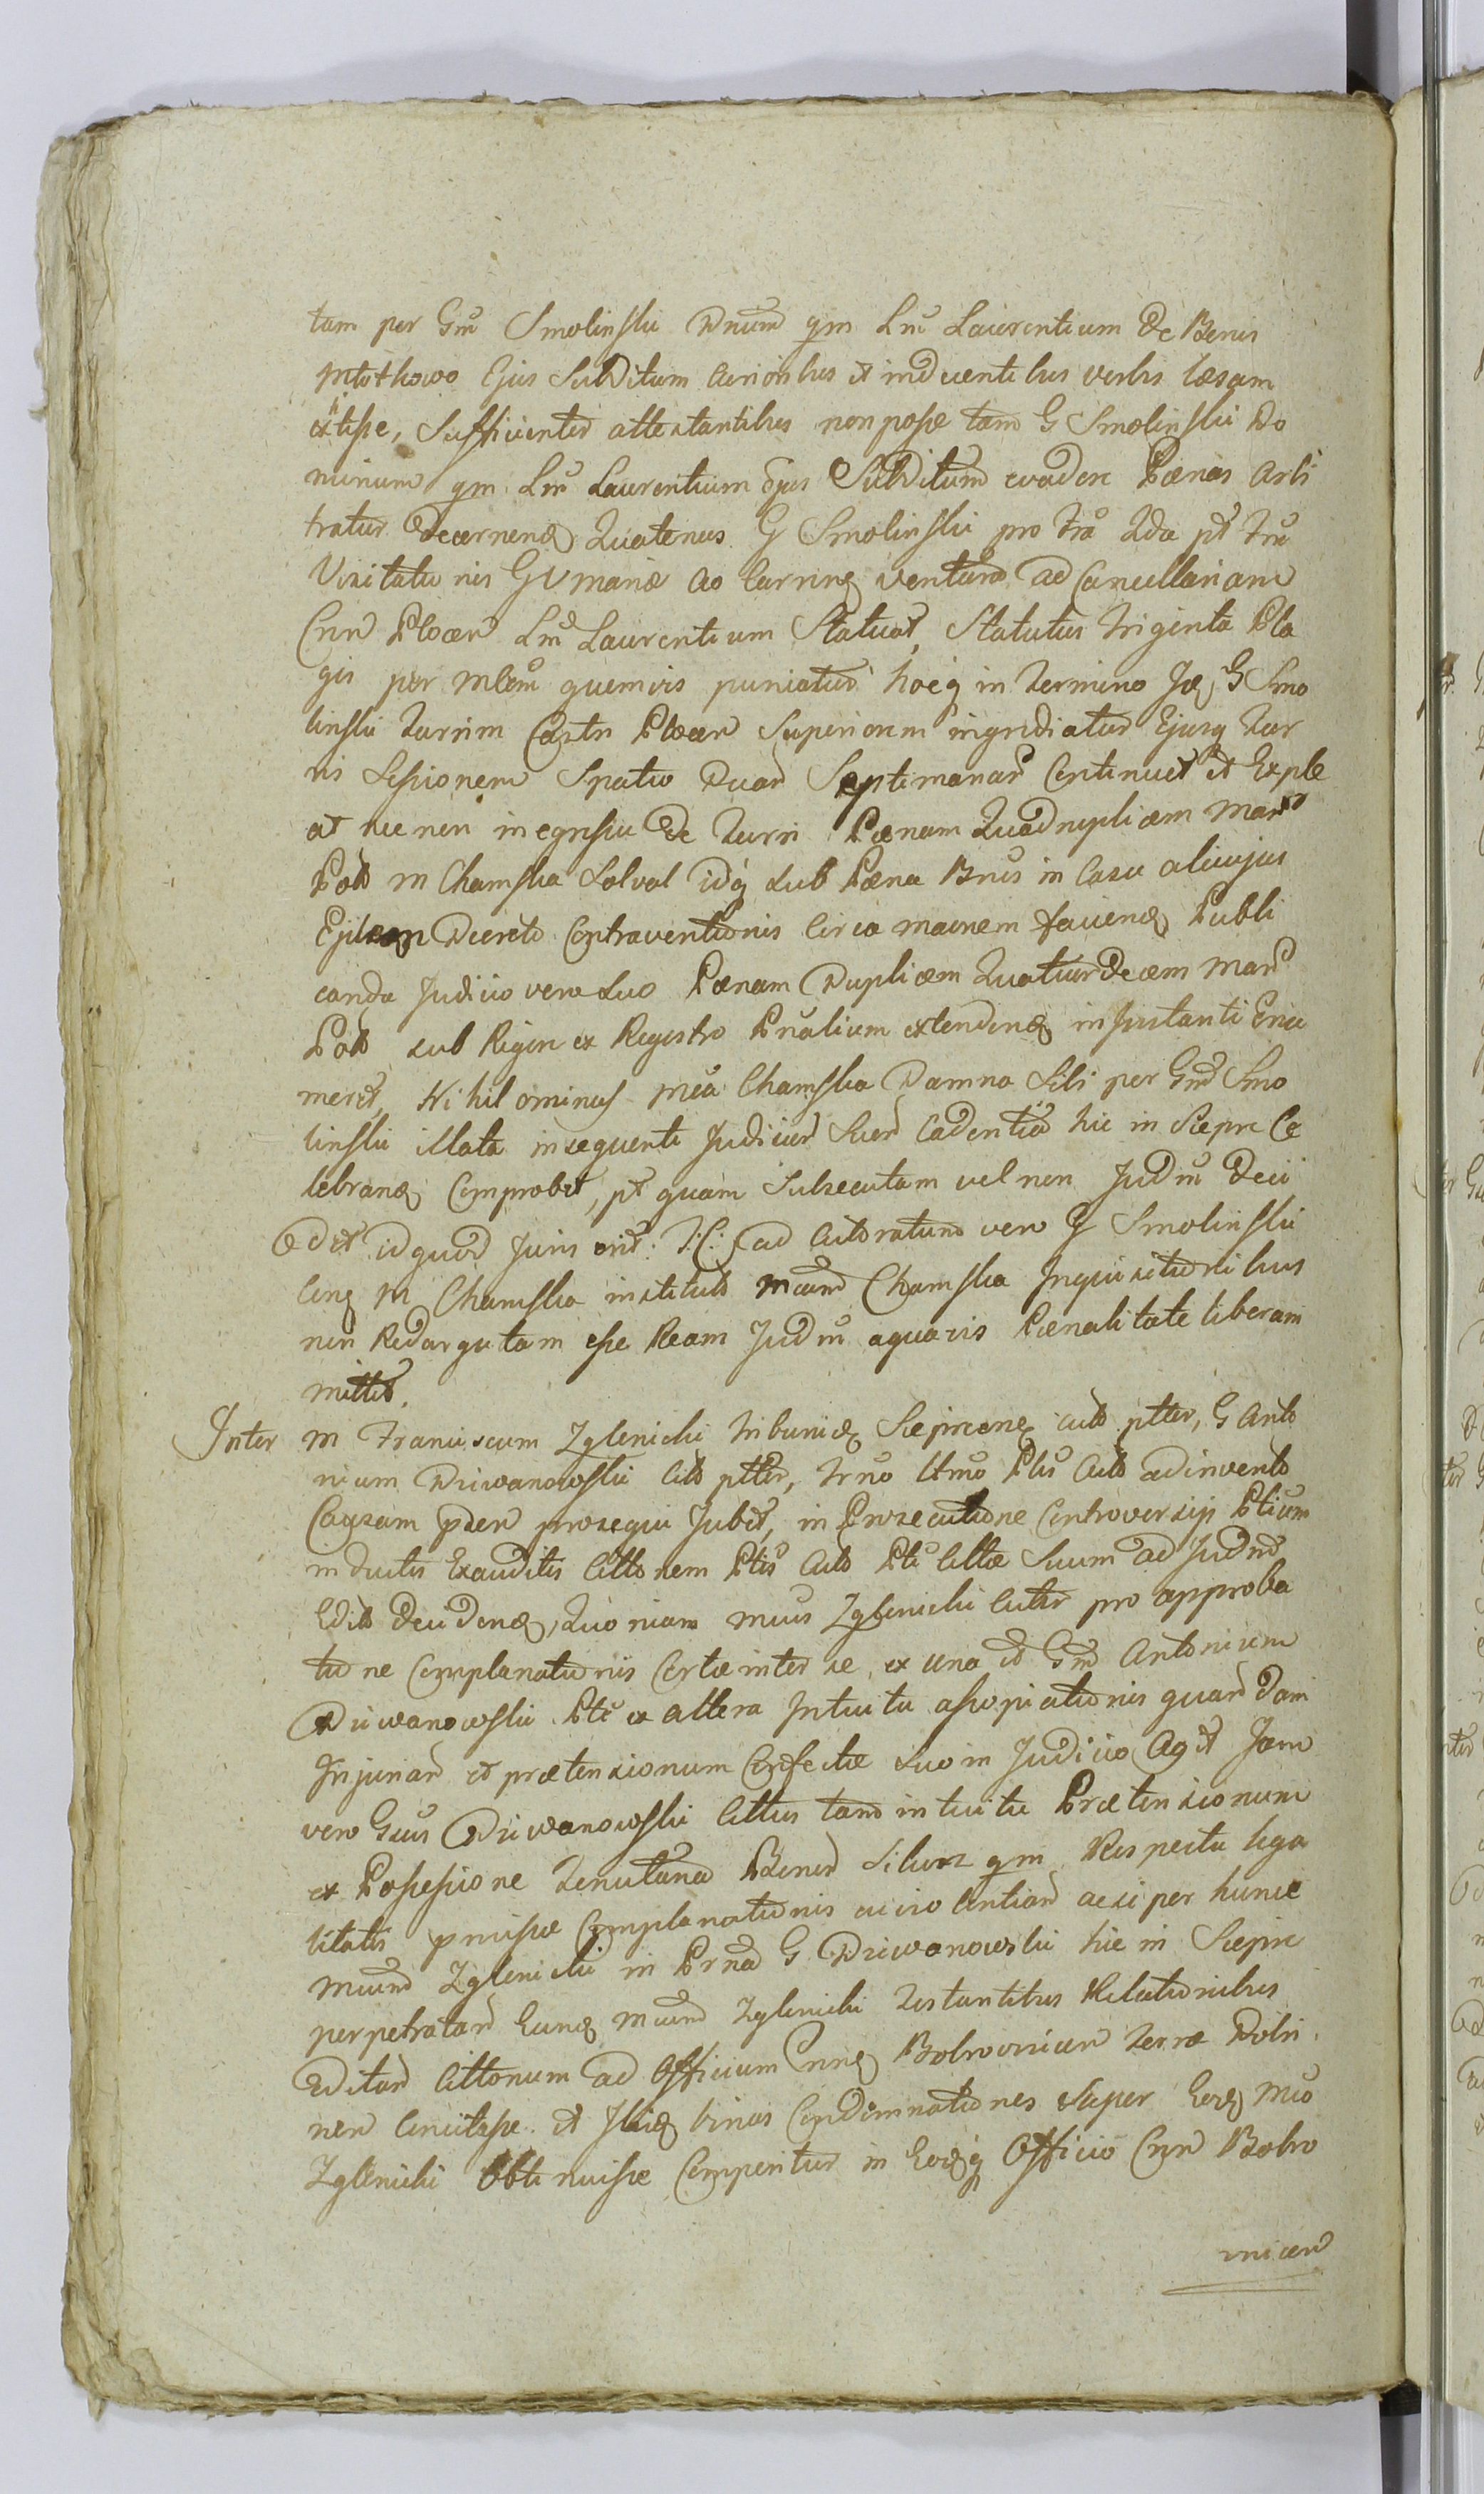 tam per Gm Smolinski Dnum qm Lm Laurentium De Benis
Ejus Subditum acrioribus et indecentibus verbis læsam
extitisse, Sufficienter attestantibus non posse tam G Smolinski Do
minum qm Lm Laurentium Ejus Subditum evadere Pænas arbi
tratur Decernend Quatenus G Smolinski pro Fra 2da pt Frũ
Visitationis G V Mariæ ao Curren venturã ad Cancellariam
Cnn Plocen Lm Laurentium Statuat, Statutus triginta Pla
gis per Mlem quemvis puniatur hocq in Termino G Smo
linski Turrim Castri Plocen Superiorem ingrediatur Ejusq Tur
ris Sessionem Spatio Duar Septimanar Continuet et Exple
at nec non in egressu De Turri Pænam Quadruplicem Mar
Pol M Chamska Solvat idq sub Pæna Bnis in Casu alicujus
Decreto Contraventionis Circa Faciend Publi
canda Judicio vero suo Pænam Duplicem Quatuordecem Mar
Pol sub Rigore ex Registro Pnalium extendend in Instanti Enu
meret, Nihilominus Mca Chamska Damna Sibi per Gm Smo
linski illata insequenti Judicior Suor Cadentia hic in Sierpc Ce
lebrand Comprobet, pt quam Subsecutam vel non Judm Decii
Odet id quod Juris erit: I:C: ad Actoratum vero G Smolinski
Cum M Chamska institut Mcam Chamska Inquisitionibus
non Redargutam esse Ream Judm aquavis Pænalitate liberam
mittit.
Inter M Franciscum Zglenicki Tribunid Sierpcens acto ptter, G Anto
nium Driwanowski Cito ptter, Trno Ptis Acto adinvento
Causam pden prosequi Jubet, in Prosecutione Controversiis Ptium
inductis Exauditis Cittonem Ptis Acto Pti Cittæ Suum ad Judm
Edito Decidend, Quoniam Mcus Zglenicki Acter pro approba
tione Complanationis Certæ inter se ex una et Gm Antonium
Driwanowski Pte ex altera Intuitu assopiationis quardam
Injuriar et prætensionum Confectæ suo in Judicio Agit Jam
vero Gsus Driwanowski Cittus tam intuitu Prætensionum
ex Possessione Tenutaria Bonor qm Respectu lega
litatis præmissæ Complanationis ac violentiar acsi per hunce
Mcum Zglenicki in Prna G Driwanowski hic in Sierpc
perpetratar Eund Mcum Zglenicki Testantibus Relationibus
Editar Cittonum ad Officium Cnn Bobrovnicen Terræ Dobri
nen Concitasse et Ibid binas Condemnationes Super Eod Mco
Zglenicki Obtinuisse Comperitur in Eodq Officio Cnn Bobro
vnicen